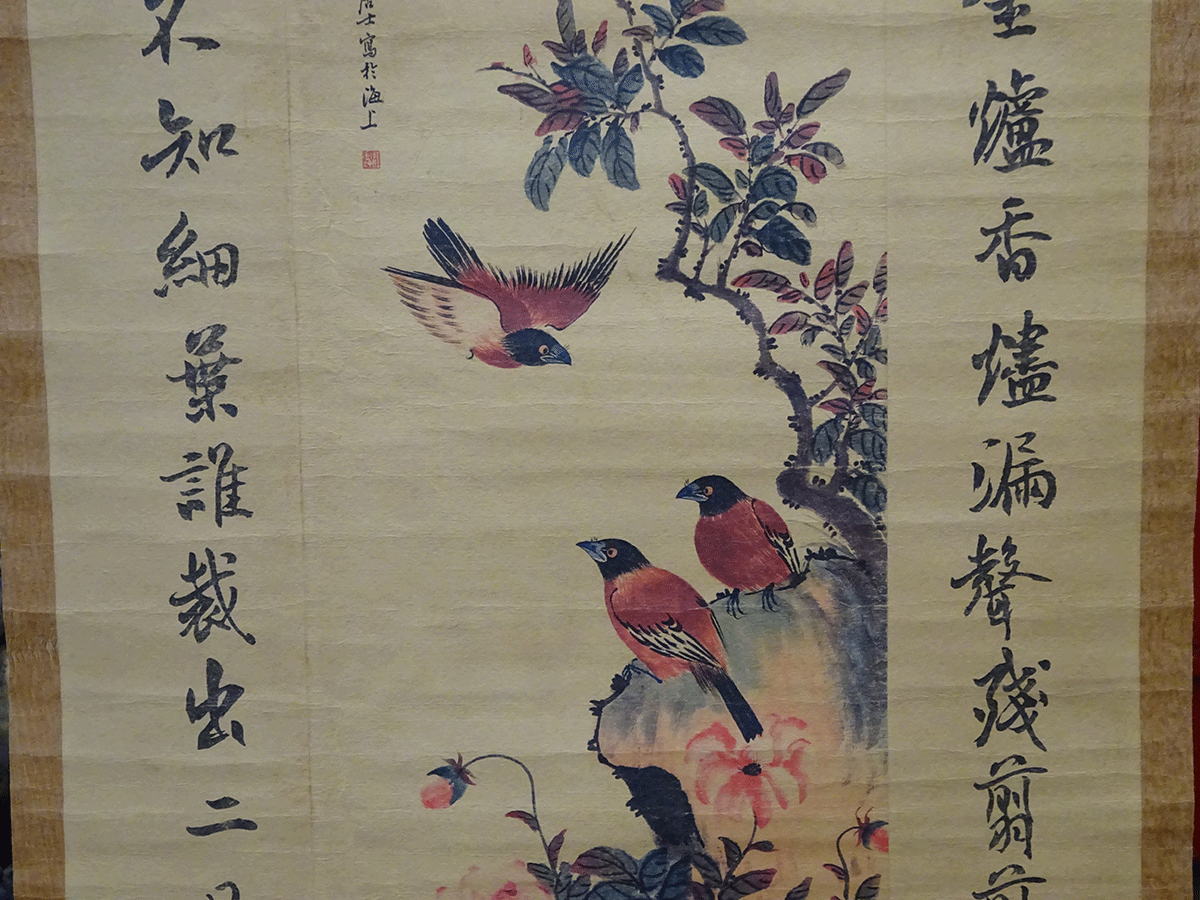 爐香燼漏聲殘翦
居士寫於海上
不知細葉誰裁出二